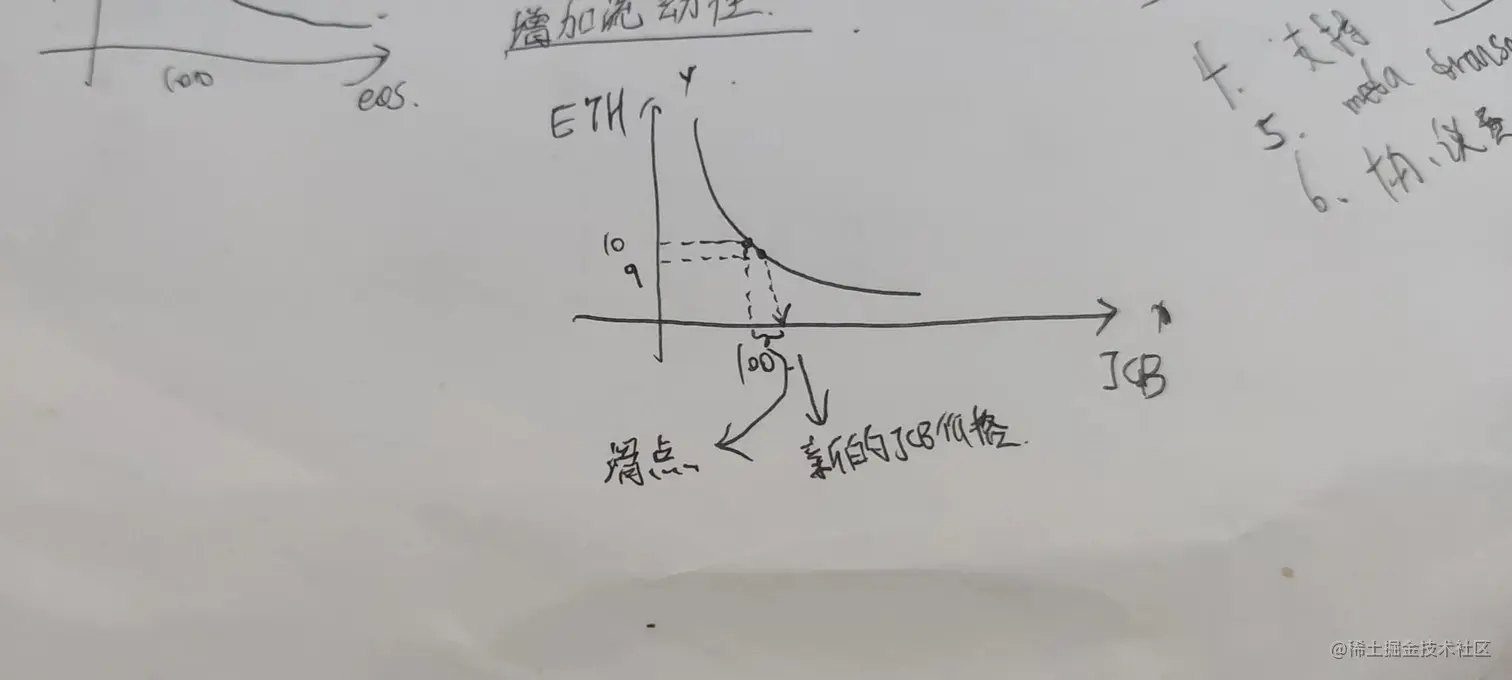 增加流动性.
100
eos.
Y
ETH
10
9
100
X
JCB
滑点
新的JCB价格.
4. 支持
5. meta trans
6. 协议
@稀土掘金技术社区